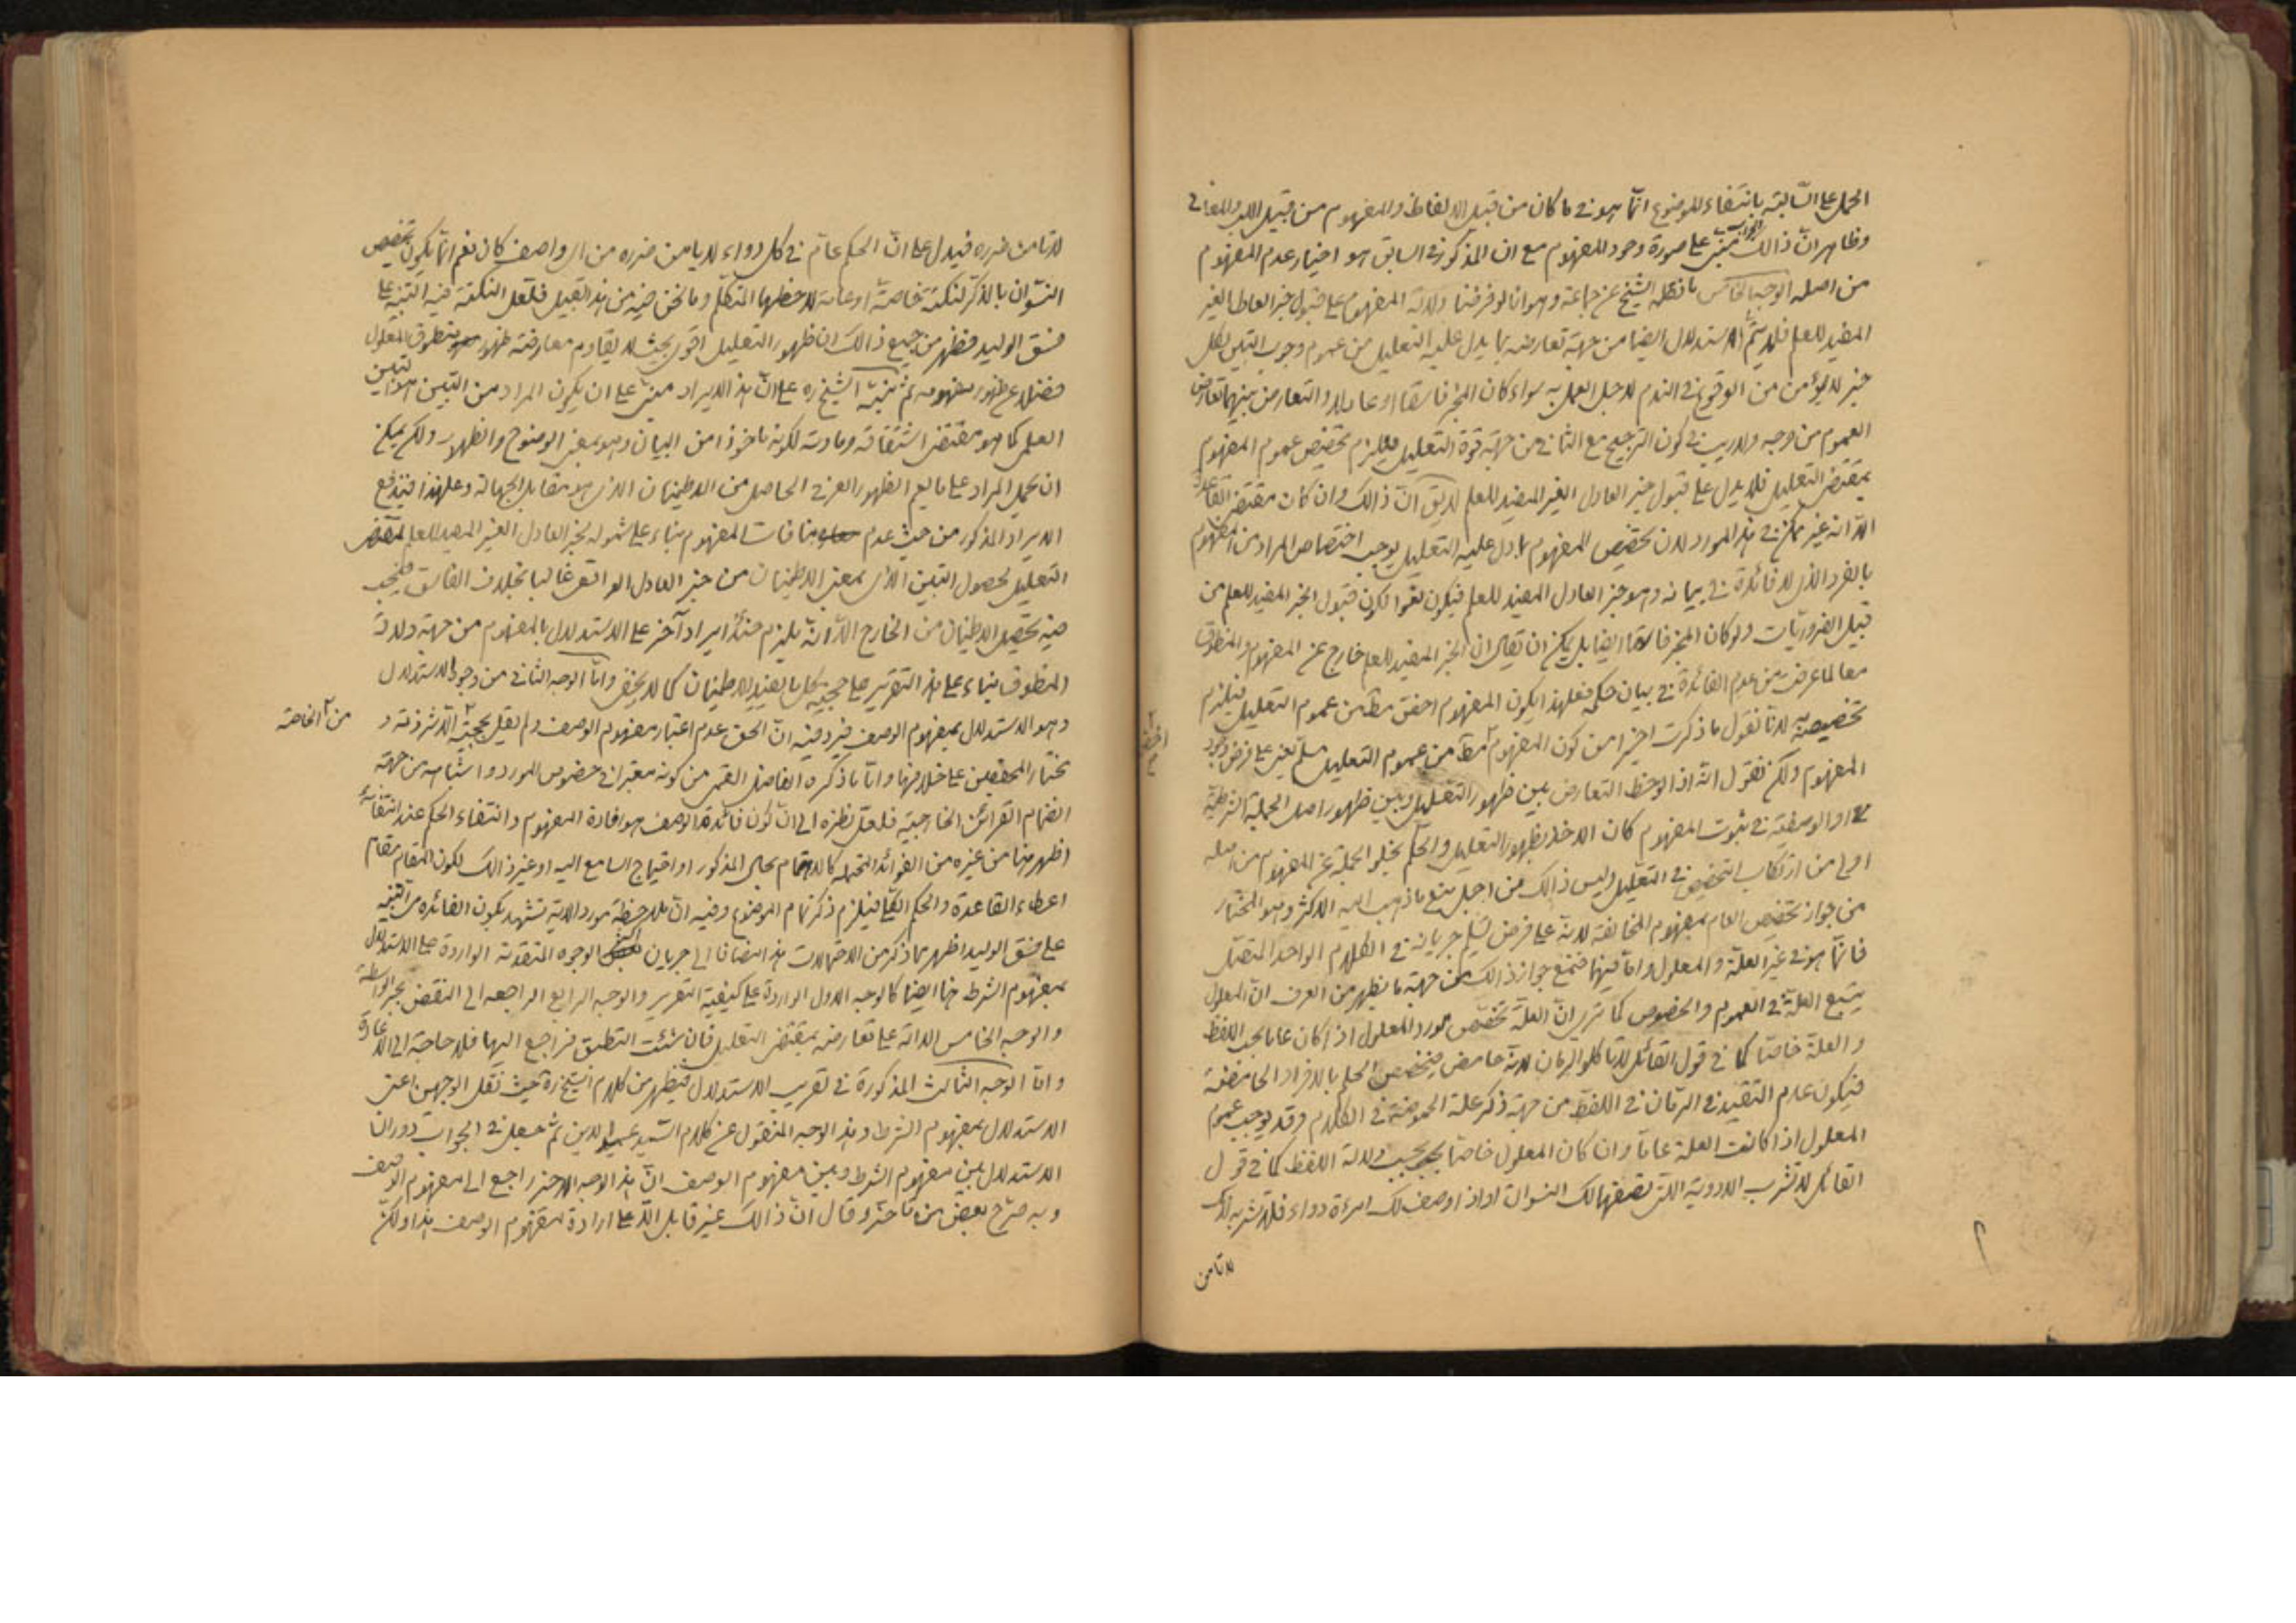 الحمل على السالبة بانتفاء الموضوع انما هو فى ما كان من قبيل الالفاظ والمفهوم من قبيل اللب والمعانى
وظاهر ان ذالك الجواب مبنى على صورة وجود المفهوم مع ان المذكور فى السابق هو اختيار عدم المفهوم
من اصله الوجه الخامس ما نقله الشيخ عن جماعة وهو انا لو فرضنا دلالة المفهوم على قبول خبر العادل الغير
المفيد للعلم فلا يتم الاستدلال ايضا من جهة تعارضه بما يدل عليه التعليل من عموم وجوب التبين لكل
خبر لا يؤمن من الوقوع فى الندم لاجل العمل به سواء كان المخبر فاسقا او عادلا والتعارض بينهما تعارض
العموم من وجه ولا ريب فى كون الترجيح مع الثانى من جهة قوة التعليل فيلزم تخصيص عموم المفهوم
بمقتضى التعليل فلا يدل على قبول خبر العادل الغير المفيد للعلم لا يق ان ذالك وان كان مقتضى القاعدة
الا انه غير ممكن فى هذ المورد لان تخصيص المفهوم بما دل عليه التعليل يوجب اختصاص المراد من المفهوم
بالفرد الذى لا فائدة فى بيانه وهو خبر العادل المفيد للعلم فيكون لغوا لكون قبول الخبر المفيد للعلم من
قبيل الضروريات ولو كان المخبر فاسقا ايضا بل يمكن ان يقال ان الخبر المفيد للعلم خارج عن المفهوم والمنطوق
معا لما عرفت من عدم الفائدة فى بيان حكمه فعلى هذا يكون المفهوم اخص مط من عموم التعليل فيلزم
تخصيصه به لانا نقول ما ذكرت اخيرا من كون المفهوم اخص مط من عموم التعليل مسلم يعنى على فرض وجود
المفهوم ولكن نقول انه اذا لوحظ التعارض بين ظهور التعليل وبين ظهور اصل الجملة الشرطية
او الوصفية فى ثبوت المفهوم كان الاخذ بظهور التعليل والحكم بخلو الجملة عن المفهوم من اصله
اولى من ارتكاب التخصيص فى التعليل وليس ذالك من اجل منع ما ذهب اليه الاكثر وهو المختار
من جواز تخصيص العام بمفهوم المخالفة لانه على فرض تسليم جريانه فى الكلام الواحد المتصل
فانما هو فى غير العلة والمعلول واما فيهما فنمنع جواز ذالك من جهة ما يظهر من العرف ان المعلول
يتبع العلة فى العموم والخصوص كما ترى ان العلة تخصص مورد المعلول اذا كان عاما بحسب اللفظ
والعلة خاصا كما فى قول القائل لا تاكل الرمان لانه حامض فيختص الحكم بالافراد الحامضة
فيكون عدم التقييد فى الرمان فى اللفظ من جهة ذكر علة الحموضة فى الكلام وقد يوجب عموم
المعلول اذا كانت العلة عاما وان كان المعلول خاصا بحسب دلالة اللفظ كما فى قول
القائل لا تشرب الادوية التى تصفها لك النسوان او اذا وصفت لك امرءة دواء فلا تشربه لانك
لا تأمن
لا تأمن ضرره فيدل على ان الحكم عام فى كل دواء لا يامن ضرره من اى واصف كان نعم انما يكون تخصيص
النسوان بالذكر لنكتة خاصة او عامة لاحظها المتكلم وما نحن فيه من هذ القبيل فلعل النكتة فيه التنبيه على
فسق الوليد فظهر من جميع ذالك ان ظهور التعليل اقوى بحيث لا يقاوم معارضته ظهور منطوق المعلول
فضلا عن ظهور مفهومه ثم نبه الشيخ ره على ان هذ الايراد مبنى على ان يكون المراد من التبين هو التبين
العلمى كما هو مقتضى اشتقاقه ومادته لكونه ماخوذا من البيان وهو بمعنى الوضوح والظهور ولكن يمكن
ان يحمل المراد على ما يعم الظهور العرفى الحاصل من الاطمينان الذى هو مقابل الجهالة وعلى هذا فيندفع
الايراد المذكور من حيث عدم منافات المفهوم بناء على شموله لخبر العادل الغير المفيد للعلم لمقتضى
التعليل لحصول التبين الذى بمعنى الاطمينان من خبر العادل الواقعى غالبا بخلاف الفاسق فيجب
فيه تحصيل الاطمينان من الخارج الا انه يلزم حينئذ ايراد آخر على الاستدلال بالمفهوم من جهة دلالة
المنطوق بناء على هذ التقرير على حجية كل ما يفيد الاطمينان كما لا يخفى واما الوجه الثانى من وجوه الاستدلال
وهو الاستدلال بمفهوم الوصف فيرد فيه ان الحق عدم اعتبار مفهوم الوصف ولم يقل بحجيته الا شرذمة و
من الخاصة
مختار المحققين على خلافها واما ما ذكره الفاضل القمى من كونه معتبرا فى خصوص المورد واشباهه من جهة
انضمام القرائن الخارجية فلعل نظره الى ان كون فائدة الوصف هو افادة المفهوم وانتفاء الحكم عند انتفائه
اظهر هنا من غيره من الفوائد المحتملة كالاهتمام بحال المذكور او احتياج السامع اليه او غير ذالك لكون المقام مقام
اعطاء القاعدة والحكم الكلى فيلزم ذكر تمام الموضوع وفيه ان ملاحظة مورد الاية تشهد بكون الفائدة هى التنبيه
على فسق الوليد اظهر مما ذكر من الاحتمالات هذ مضافا الى جريان الوجوه المتقدمة الواردة على الاستدلال
بمفهوم الشرط هنا ايضا كالوجه الاول الواردة على كيفية التقرير والوجه الرابع الراجعه الى النقض بخبر الواسطة
والوجه الخامس الدالة على تعارضه بمقتضى التعليل فان شئت التطبيق فراجع اليها فلا حاجة الى الاعادة
واما الوجه الثالث المذكورة فى تقريب الاستدلال فيظهر من كلام الشيخ ره حيث نقل الوجهين اعنى
الاستدلال بمفهوم الشرط وهذ الوجه المنقول عن كلام السيد عميد الدين ثم جعل فى الجواب دوران
الاستدلال بين مفهوم الشرط وبين مفهوم الوصف ان هذ الوجه الاخير راجع الى مفهوم الوصف
وبه صرح بعض من تأخر وقال ان ذالك غير قابل الا على ارادة مفهوم الوصف هذا ولكن